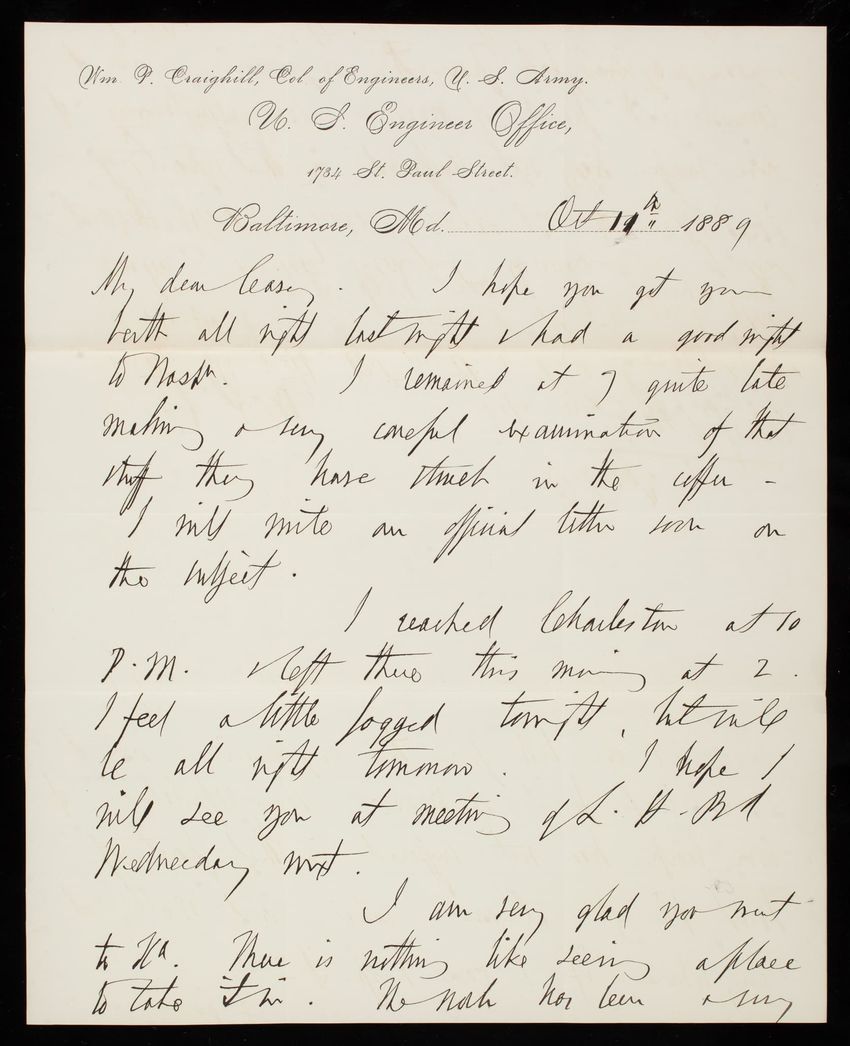 Wm. P. Craighill, Col of Engineers, U. S. Army.
U. S. Engineer Office,
1734 St. Paul Street.
Baltimore, Md. Oct 11th 1889
My dear Casey. I hope you got your
berth all right last night & had a good night
to Washn. I remained at J quite late
making a very careful examination of that
stuff they have struck in the coffer -
I will write an official letter soon on
the subject.
I reached Charleston at 10
P.M. & left there this morning at 2.
I feel a little fagged tonight, but will
be all right tomorrow. I hope I
will see you at meeting of L. H. Bd
Wednesday next.
I am very glad you went
to Ka. There is nothing like seeing a place
to take it in. The work has been a very